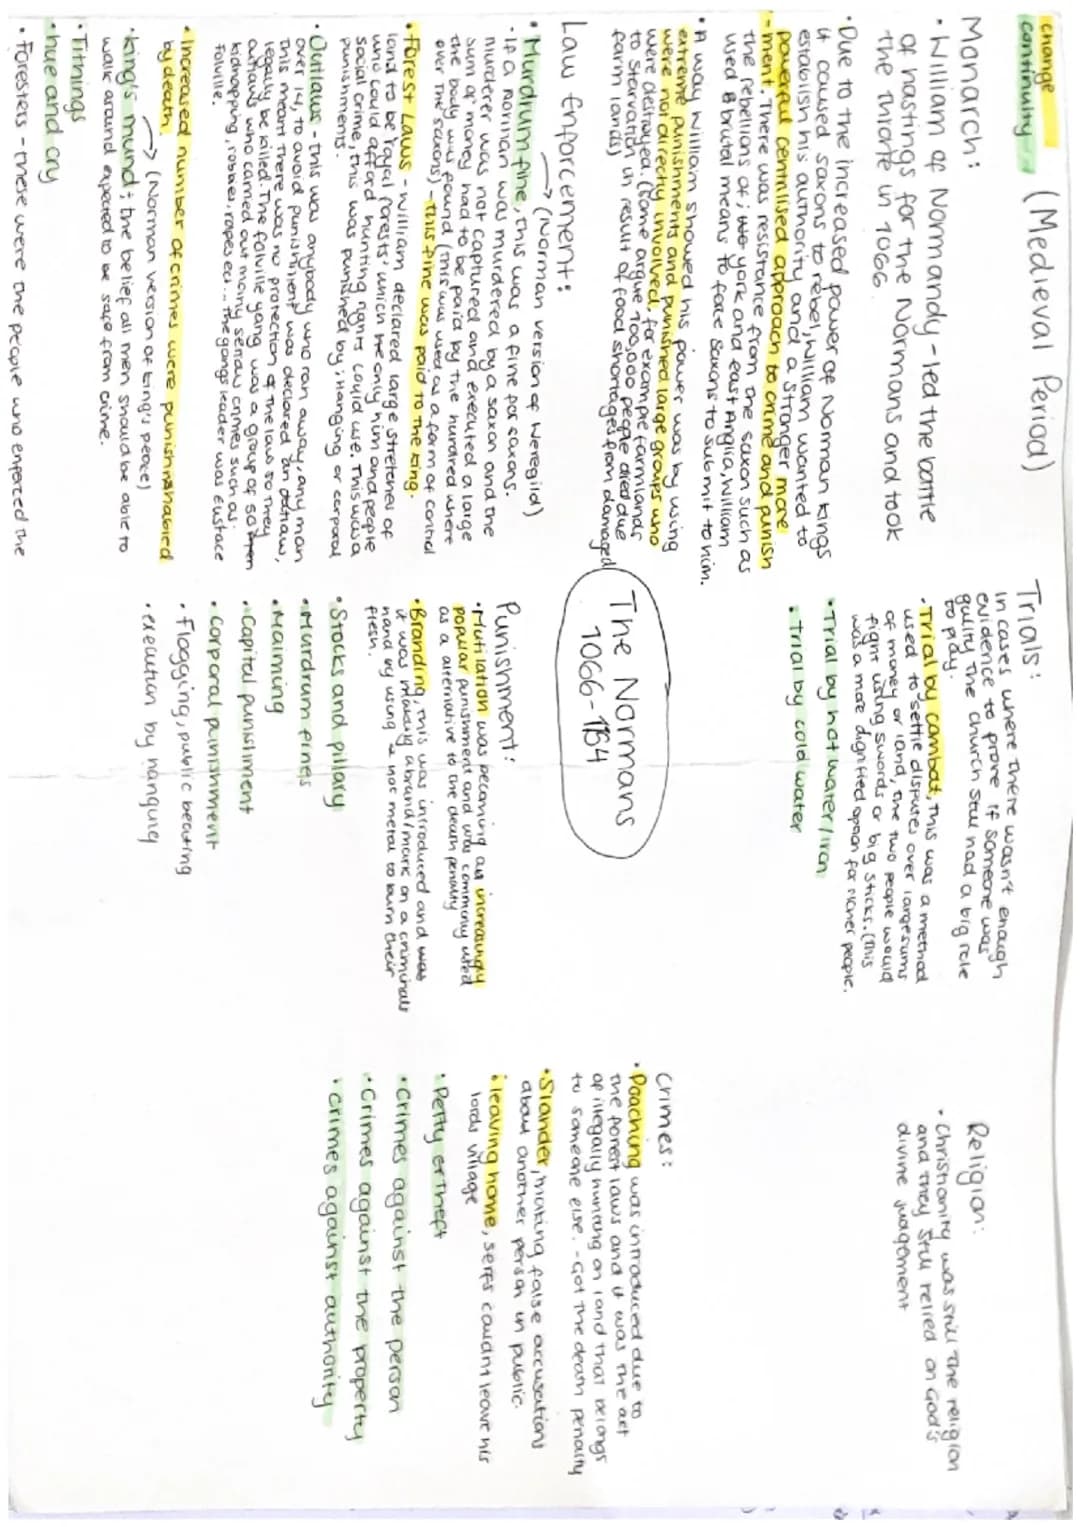 change
continuity
(Medieval Period)
Monarch:
• William of Normandy - led the battle
of hastings for the Normans and took
the throne in 1066
• Due to the increased power of Norman kings
it caused saxons to rebel, William wanted to
establish his authority and a stronger more
powerful centralised approach to crime and punish
-ment. There was resistance from the saxon such as
the rebellions of; york and east Anglia, William
used Brutal means to force saxons to submit to him.
• A way William showed his power was by using
extreme punishments and punished large groups who
were not directly involved, for example farmlands
were destroyed. (Some argue 100,000 people died due
to starvation in result of food shortages from damaged
farm lands)
Law enforcement:
→ (Norman version of Weregild)
• Murdrum fine, this was a fine for saxons.
• If a norman was murdered by a saxon and the
murderer was not captured and executed a large
sum of money had to be paid by the hundred where
the body was found (this was used as a form of control
over the saxons) - this fine was paid to the king.
• Forest Laws - William declared large stretches of
land to be 'royal forests' which he only hun and people
who could afford hunting rights could use. This was a
social crime, this was punished by; hanging or corporal
punishments.
• Outlaws - this was anybody who ran away, any man
over 14, to avoid punishment was declared an outlaw,
this meant there was no protection of the law so they
legally be killed. The folville gang was a group of 50 men
outlaws who carried out many serious crimes such as:
kidnapping, robberies, rapes ect... the gangs leader was Eustace
Folville.
• Increased number of crimes were punishnished
by death.
→ (Norman version of king's peace)
• king's mund: the belief all men should be able to
walk around expected to be safe from crime.
• Tithings
• hue and cry
• Foresters - these were the people who enforced the
The Normans
1066-1154
Trials:
In cases where there wasn't enough
evidence to prove if someone was
guilty the church still had a big role
to play.
• Trial by combat, this was a method
used to settle disputes over large sums
of money or land, the two people would
fight using swords or big sticks. (This
was a more dignified option for richer people.
• Trial by hot water/iron
• Trial by cold water
Punishment:
• Mutilation was becoming an increasingly
popular punishment and was commonly used
as a alternative to the death penalty
• Branding, this was introduced and was
it was making a brand/mark on a criminals
hand by using a hot metal to burn their
flesh.
• Stocks and pillary
• Murdrum fines
• Maiming
• Capital punishment
• Corporal punishment
• Flogging, public beating
• execution by hanging
Religion:
• Christianity was still the religion
and they still relied on God's
divine judgement
Crimes:
• Poaching was introduced due to
the forest laws and it was the act
of illegally hunting on land that belongs
to someone else. - Got the death penalty
• Slander, making false accusations
about another person in public.
• leaving home, serfs couldn't leave his
lords village
• Petty or theft
• Crimes against the person
• Crimes against the property
• Crimes against authority